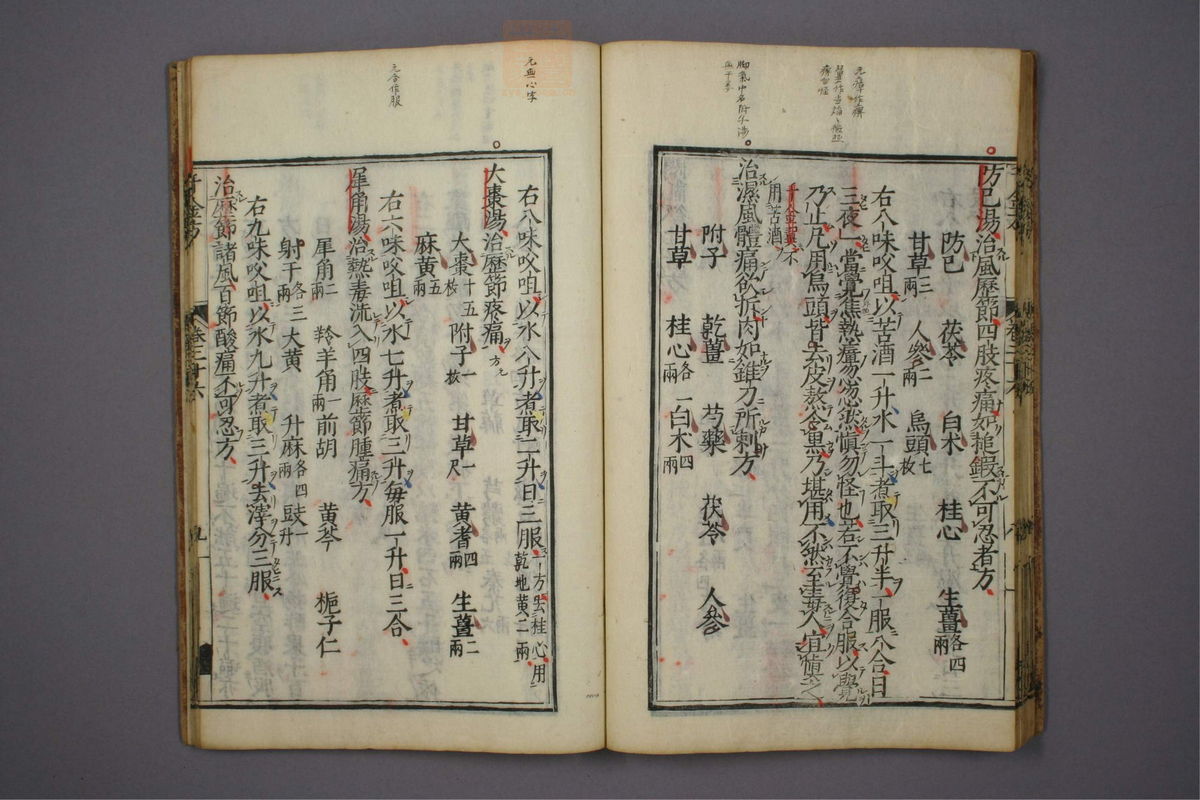 防已湯治風歷節四肢疼痛如搥鍛不可忍者方
防已 茯苓 白朮 桂心 生薑各四兩
甘草三兩 人參二兩 烏頭七枚
右八味㕮咀以苦酒一升水一斗煮取三升半一服八合日
三夜一當覺焦熱痺忽忽然慎勿怪也若不覺復合服以覺
乃止凡用烏頭皆去皮熬令黑乃堪用不然至毒人宜慎之
千金翼不
用苦酒
治濕風體痛欲折肉如錐刀所刺方
附子 乾薑 芍藥 茯苓 人參
甘草 桂心各三兩 白朮四兩
右八味㕮咀以水八升煮取二升日三服一方去桂心用
乾地黃二兩
大棗湯治歷節疼痛方
大棗十五枚 附子一枚 甘草一尺 黃耆四兩 生薑二兩
麻黃五兩
右六味㕮咀以水七升煮取三升每服一升日三合
犀角湯治熱毒流入四肢歷節腫痛方
犀角二兩 羚羊角一兩 前胡 黃芩 梔子仁
射干各三兩 大黃 升麻各四兩 豉一升
右九味㕮咀以水九升煮取三升去滓分三服
治歷節諸風百節酸痛不可忍方
千金方
卷二十六
九
元無心字
元合作服